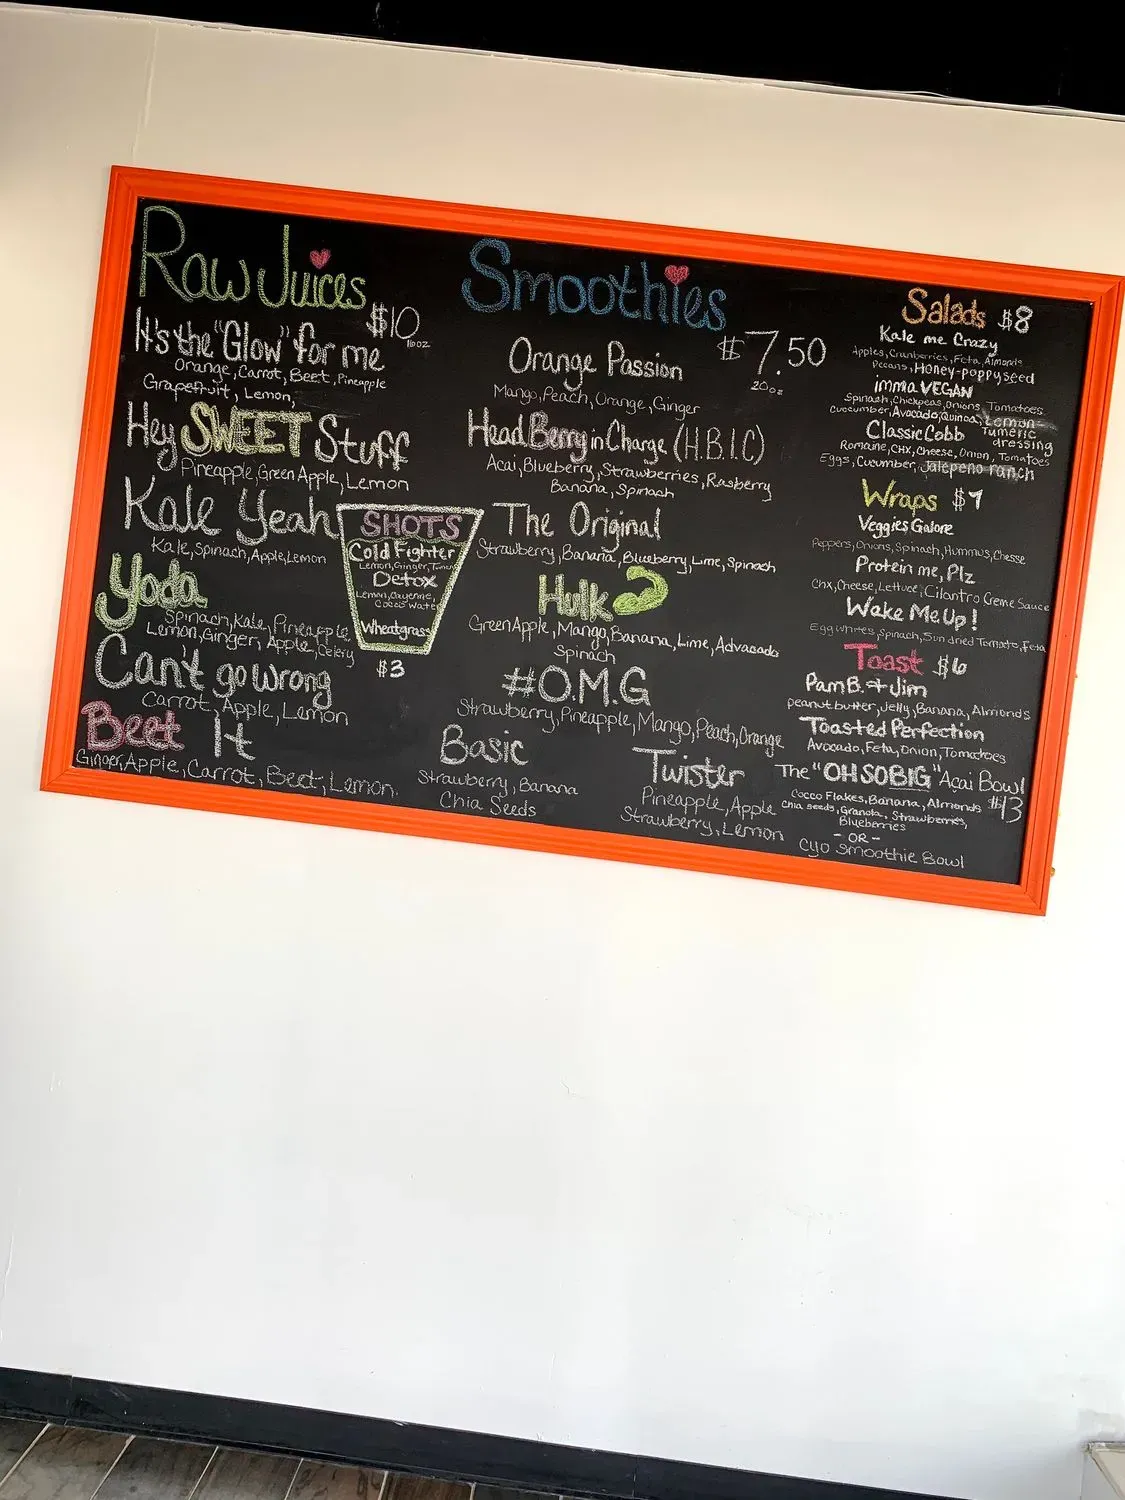 Raw Juices
$10
16oz
It's the "Glow" for me
Orange, Carrot, Beet, Pineapple
Grapefruit, Lemon,
Hey SWEET Stuff
Pineapple, Green Apple, Lemon
Kale Yeah
Kale, Spinach, Apple, Lemon
Yoda
Spinach, Kale, Pineapple
Lemon, Ginger, Apple, Celery
Can't go wrong
Carrot, Apple, Lemon
Beet It
Ginger, Apple, Carrot, Beet, Lemon,
SHOTS
Cold Fighter
Lemon, Ginger,
Detox
Lemon, Cayenne,
Coco Water
Wheatgrass
$3
Smoothies
$7.50
20oz
Orange Passion
Mango, Peach, Orange, Ginger
Head Berry in Charge (H.B.I.C)
Acai, Blueberry, Strawberries, Rasberry
Banana, Spinach
The Original
Strawberry, Banana, Blueberry, Lime, Spinach
Hulk
Green Apple, Mango, Banana, Lime, Advacado
Spinach
#O.M.G
Strawberry, Pineapple, Mango, Peach, Orange
Basic
Strawberry, Banana
Chia Seeds
Twister
Pineapple, Apple
Strawberry, Lemon
Salads $8
Kale me Crazy
Apples, Cranberries, Feta, Almonds
Pecans, Honey-poppyseed
imma VEGAN
Spinach, Chickpeas, Onions, Tomatoes
Cuocumber, Avocado, Quinoa, Lemon-
Tumeric
dressing
Classic Cobb
Romaine, CHX, Cheese, Onion, Tomatoes
Eggs, Cucumber, Jalepeno ranch
Wraps $9
Veggies Galore
Peppers, Onions, Spinach, Hummus, Cheese
Protein me, Plz
Chx, Cheese, Lettuce, Cilantro Creme Sauce
Wake Me Up!
Egg whites, Spinach, Sun dried Tomato, Feta
Toast $6
Pam B. + Jim
peanut butter, Jelly, Banana, Almonds
Toasted Perfection
Avocado, Feta, Onion, Tomatoes
The "OH SO BIG" Açai Bowl
$13
Cocco Flakes, Banana, Almonds
Chia seeds, Granola, Strawberries,
Blueberries
- OR -
CYO Smoothie Bowl